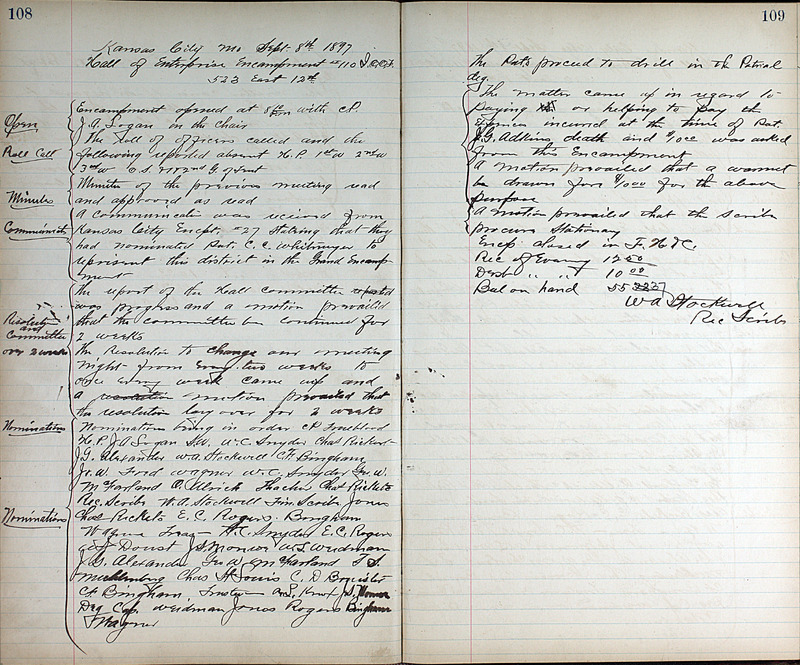 108
Kansas City Mo Sept. 8th 1897
Hall of Enterprise Encampment No 110 I.O.O.F.
523 East 12th
Open
Encampment opened at 8 with CP
J.A. Logan in the Chair
Roll Call
The Roll of officers called and the
following reported absent H.P. 1st W 2nd W
3rd W O.S. 1st & 2nd G. of Tent
Minutes
Minutes of the previous meeting read
and approved as read
Communicats
a communicatin was received from
Kansas City Encpt. #27 Stating that they
had nominated Pat. C. C. to
represent this district in the Grand Encamp
ment
the report of the Hall committee
was progress and a motion prevailed
that the committee be continued for
2 weeks
Resolution
and
Committee
over 2 weeks
the Resolution to change our meeting
night from Every two weeks to
once every week came up and
a resolution motion prevailed that
the resolution lay over for 2 weeks
Nominations
Nominations being in order CP
H.P. J A Logan S.W. W.C. Snyder Chas Rickert
J.G. Alexander W.A. Stockwell C.F. Bingham
Jr. W. Ford Wagner W.C. Snyder Geo W.
McFarland O. Ulrich Thacker Chas Ricketts
Rec. Scribe W.A. Stockwell Fin. Scribe Jones
Nominations
Chas Ricketts E.C. Rogers, Bingham
Wagner Treas W.C. Snyder E.C. Rogers
Doust J.S. Monroe W.S. Weidman
J.G. Alexander Geo W. McFarland
Muehlenburg Chas St Louis C. D
C.F. Bingham Trustee Knox J.S. Monroe
Deg Cap. Weidman Jones Rogers Bingham
Wagner
109
The Pat's proceed to drill in the Patrial
deg.
The matter came up in regard to
paying or helping to pay the
Expenses incurred at the time of Pat.
J.G. Adkins death and $10.00 was asked
from this Encampment
A motion prevailed that a warrant
be drawn for $10.00 for the above
purpose
A motion prevailed that the scribe
procure Stationary
Encp closed in F. H & C.
Rec of Evening 12 50
Desb " " 10 00
Bal on hand
W A Stockwell
Rec Scribe